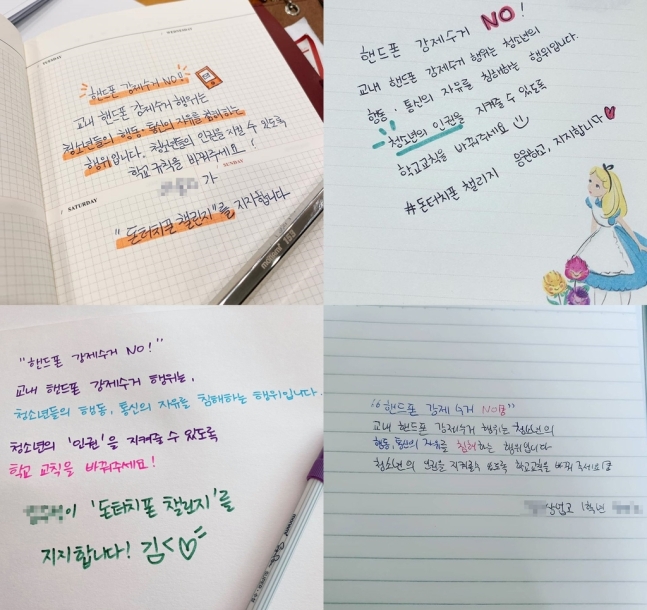 TUESDAY
WEDNESDAY
핸드폰 강제수거 NO!!
교내 핸드폰 강제수거 행위는
청소년들의 행동·통신의 자유를 침해하는
행위입니다. 청소년들의 인권을 지킬 수 있도록
학교 규칙을 바꿔주세요!
SUNDAY
가
SATURDAY
"돈터치폰 챌린지"를 지지합니다
핸드폰 강제수거 NO!
교내 핸드폰 강제수거 행위는 청소년의
행동·통신의 자유를 침해하는 행위입니다.
청소년의 인권을 지켜줄 수 있도록
학교교칙을 바꿔주세요
#돈터치폰 챌린지 응원하고, 지지합니다
"핸드폰 강제수거 NO!"
교내 핸드폰 강제수거 행위는,
청소년들의 행동, 통신의 자유를 침해하는 행위입니다.
청소년의 '인권'을 지켜줄 수 있도록
학교 교칙을 바꿔주세요!
이 '돈터치폰 챌린지'를
지지합니다! 김<♡=
"핸드폰 강제 수거 NO!"
교내 핸드폰 강제수거 행위는 청소년의
행동, 통신의 자유를 침해하는 행위입니다
청소년의 인권을 지켜줄수 있도록 학교교칙을 바꿔 주세요!
상업고 1학년